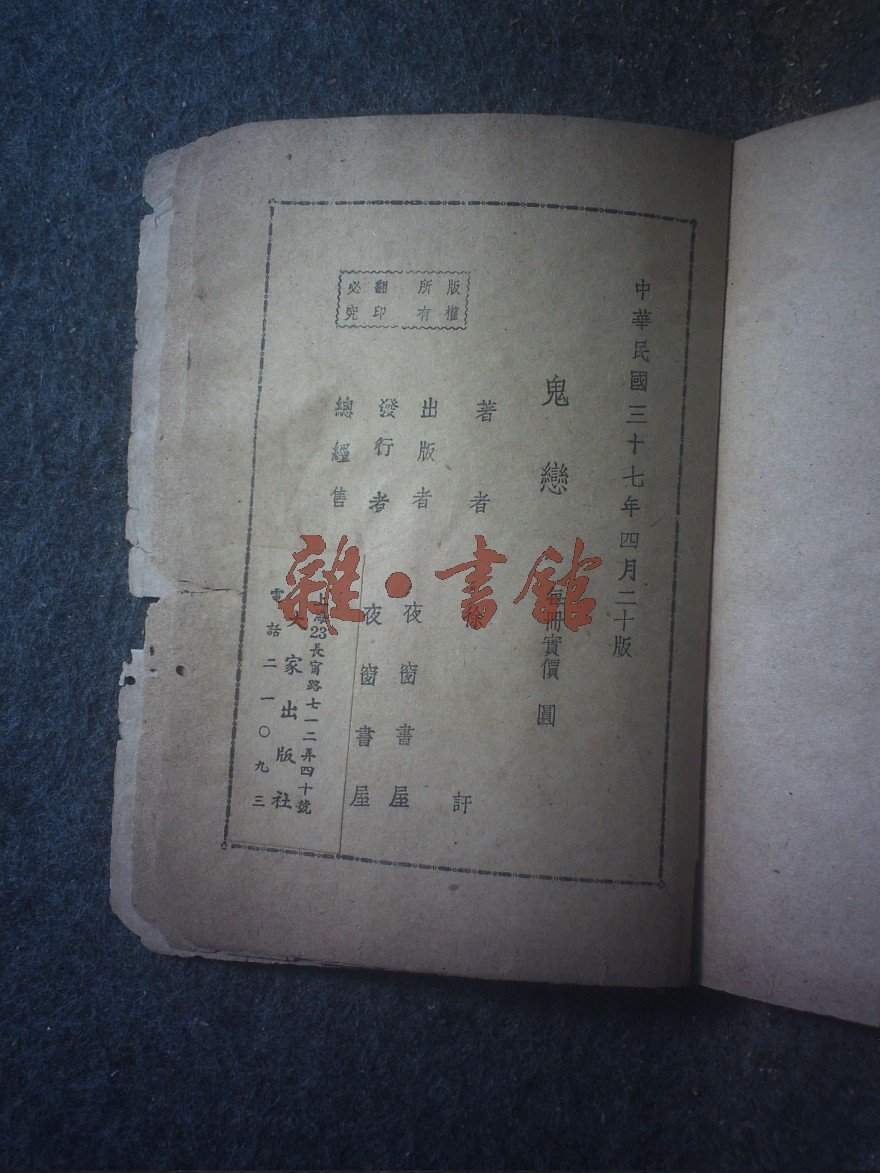 中華民國三十七年四月二十版
鬼戀 每冊實價 圓
著者 徐訏
出版者 夜窗書屋
發行者 夜窗書屋
總經售
上海23長甯路七一二弄四十號
大家出版社
電話二一〇九三
版權
所有
翻印
必究
雜·書館